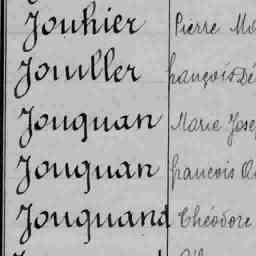 Jouhier Pierre
Jouiller françois
Jouquan Marie
Jouquan francois
Jouquand Théodore